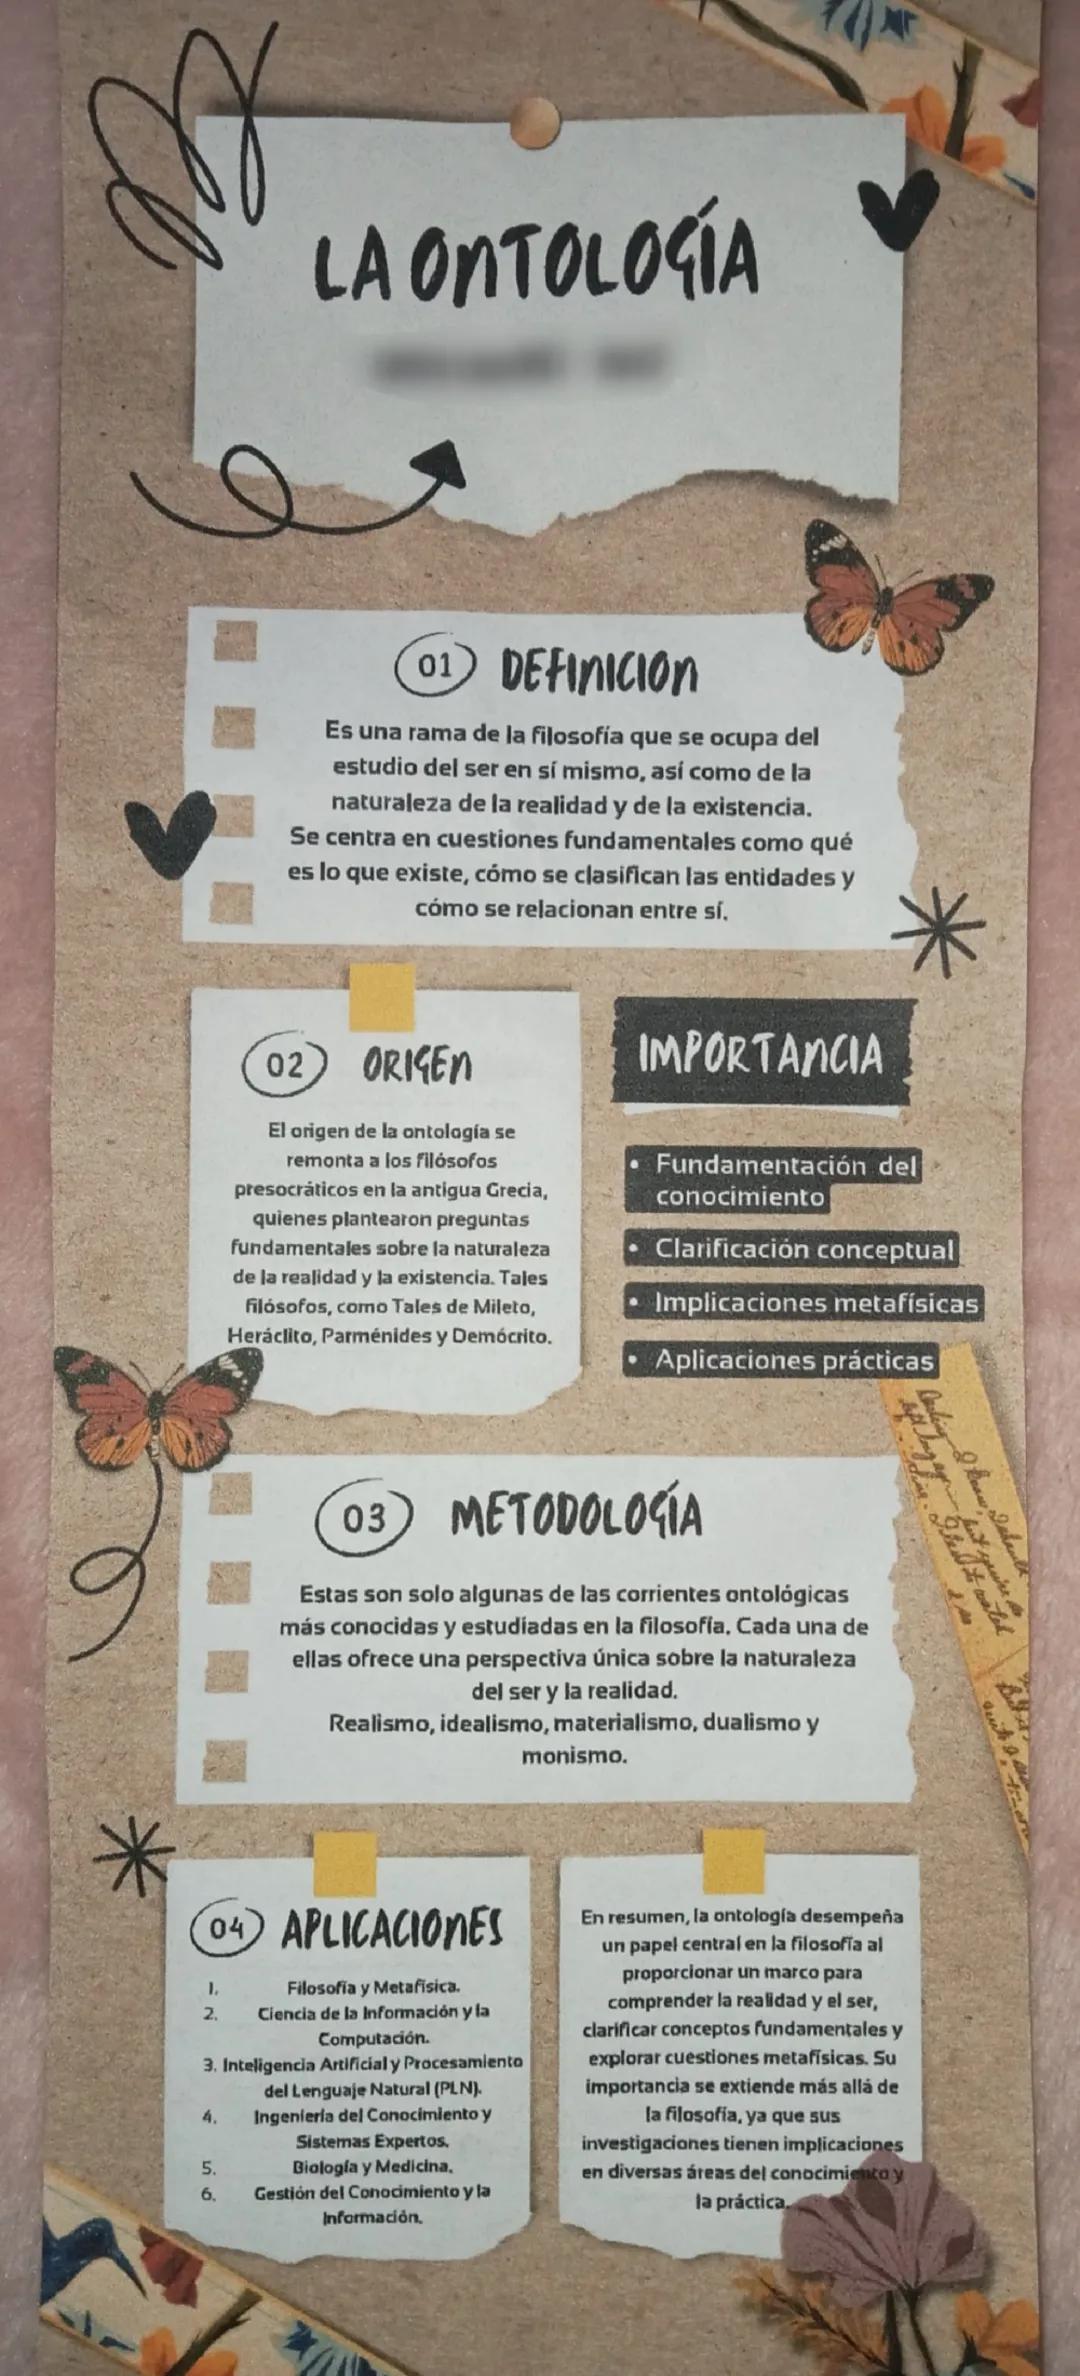 LA ONTOLOGÍA
01 DEFINICION
Es una rama de la filosofía que se ocupa del
estudio del ser en sí mismo, así como de la
naturaleza de la realidad y de la existencia.
Se centra en cuestiones fundamentales como qué
es lo que existe, cómo se clasifican las entidades y
cómo se relacionan entre sí.
02 ORIGEN
El origen de la ontología se
remonta a los filósofos
presocráticos en la antigua Grecia,
quienes plantearon preguntas
fundamentales sobre la naturaleza
de la realidad y la existencia. Tales
filósofos, como Tales de Mileto,
Heráclito, Parménides y Demócrito.
IMPORTANCIA
• Fundamentación del
conocimiento
• Clarificación conceptual
• Implicaciones metafísicas
• Aplicaciones prácticas
03 METODOLOGÍA
Estas son solo algunas de las corrientes ontológicas
más conocidas y estudiadas en la filosofía. Cada una de
ellas ofrece una perspectiva única sobre la naturaleza
del ser y la realidad.
Realismo, idealismo, materialismo, dualismo y
monismo.
04 APLICACIONES
1. Filosofía y Metafísica.
2. Ciencia de la Información y la
Computación.
3. Inteligencia Artificial y Procesamiento
del Lenguaje Natural (PLN).
4. Ingeniería del Conocimiento y
Sistemas Expertos.
5. Biología y Medicina.
6. Gestión del Conocimiento y la
Información.
En resumen, la ontología desempeña
un papel central en la filosofía al
proporcionar un marco para
comprender la realidad y el ser,
clarificar conceptos fundamentales y
explorar cuestiones metafísicas. Su
importancia se extiende más allá de
la filosofía, ya que sus
investigaciones tienen implicaciones
en diversas áreas del conocimiento y
la práctica.